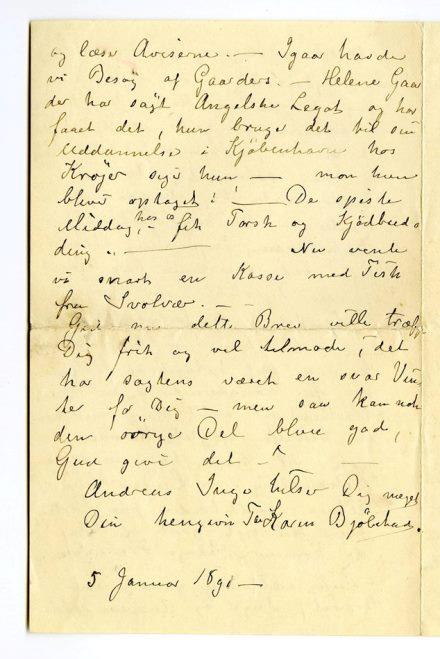 og læse Aviserne. — Igaar havde
vi Besøg af Gaarders. — Helene Gaar
der har søgt Angelske Legat og har
faaet det, hun bruger det til sin
Uddannelse i Kjøbenhavn hos
Krøyer siger hun — mon hun
bliver optaget! — De spiste
Middag hos os, fik Torsk og Kjødbud
ding. — Nu vente
vi snart en Kasse med Fisk
fra Svolvær. —
Gud nu dette Brev ville træffe
Dig frisk og vel tilmode, det
har sagtens været en svær Vin
ter for Dig — men saa kan nok
den øvrige Del blive god,
Gud give det —
Andreas Inge hilser Dig meget
Din hengivne Karen Bjölstad.
5 Januar 1891 —